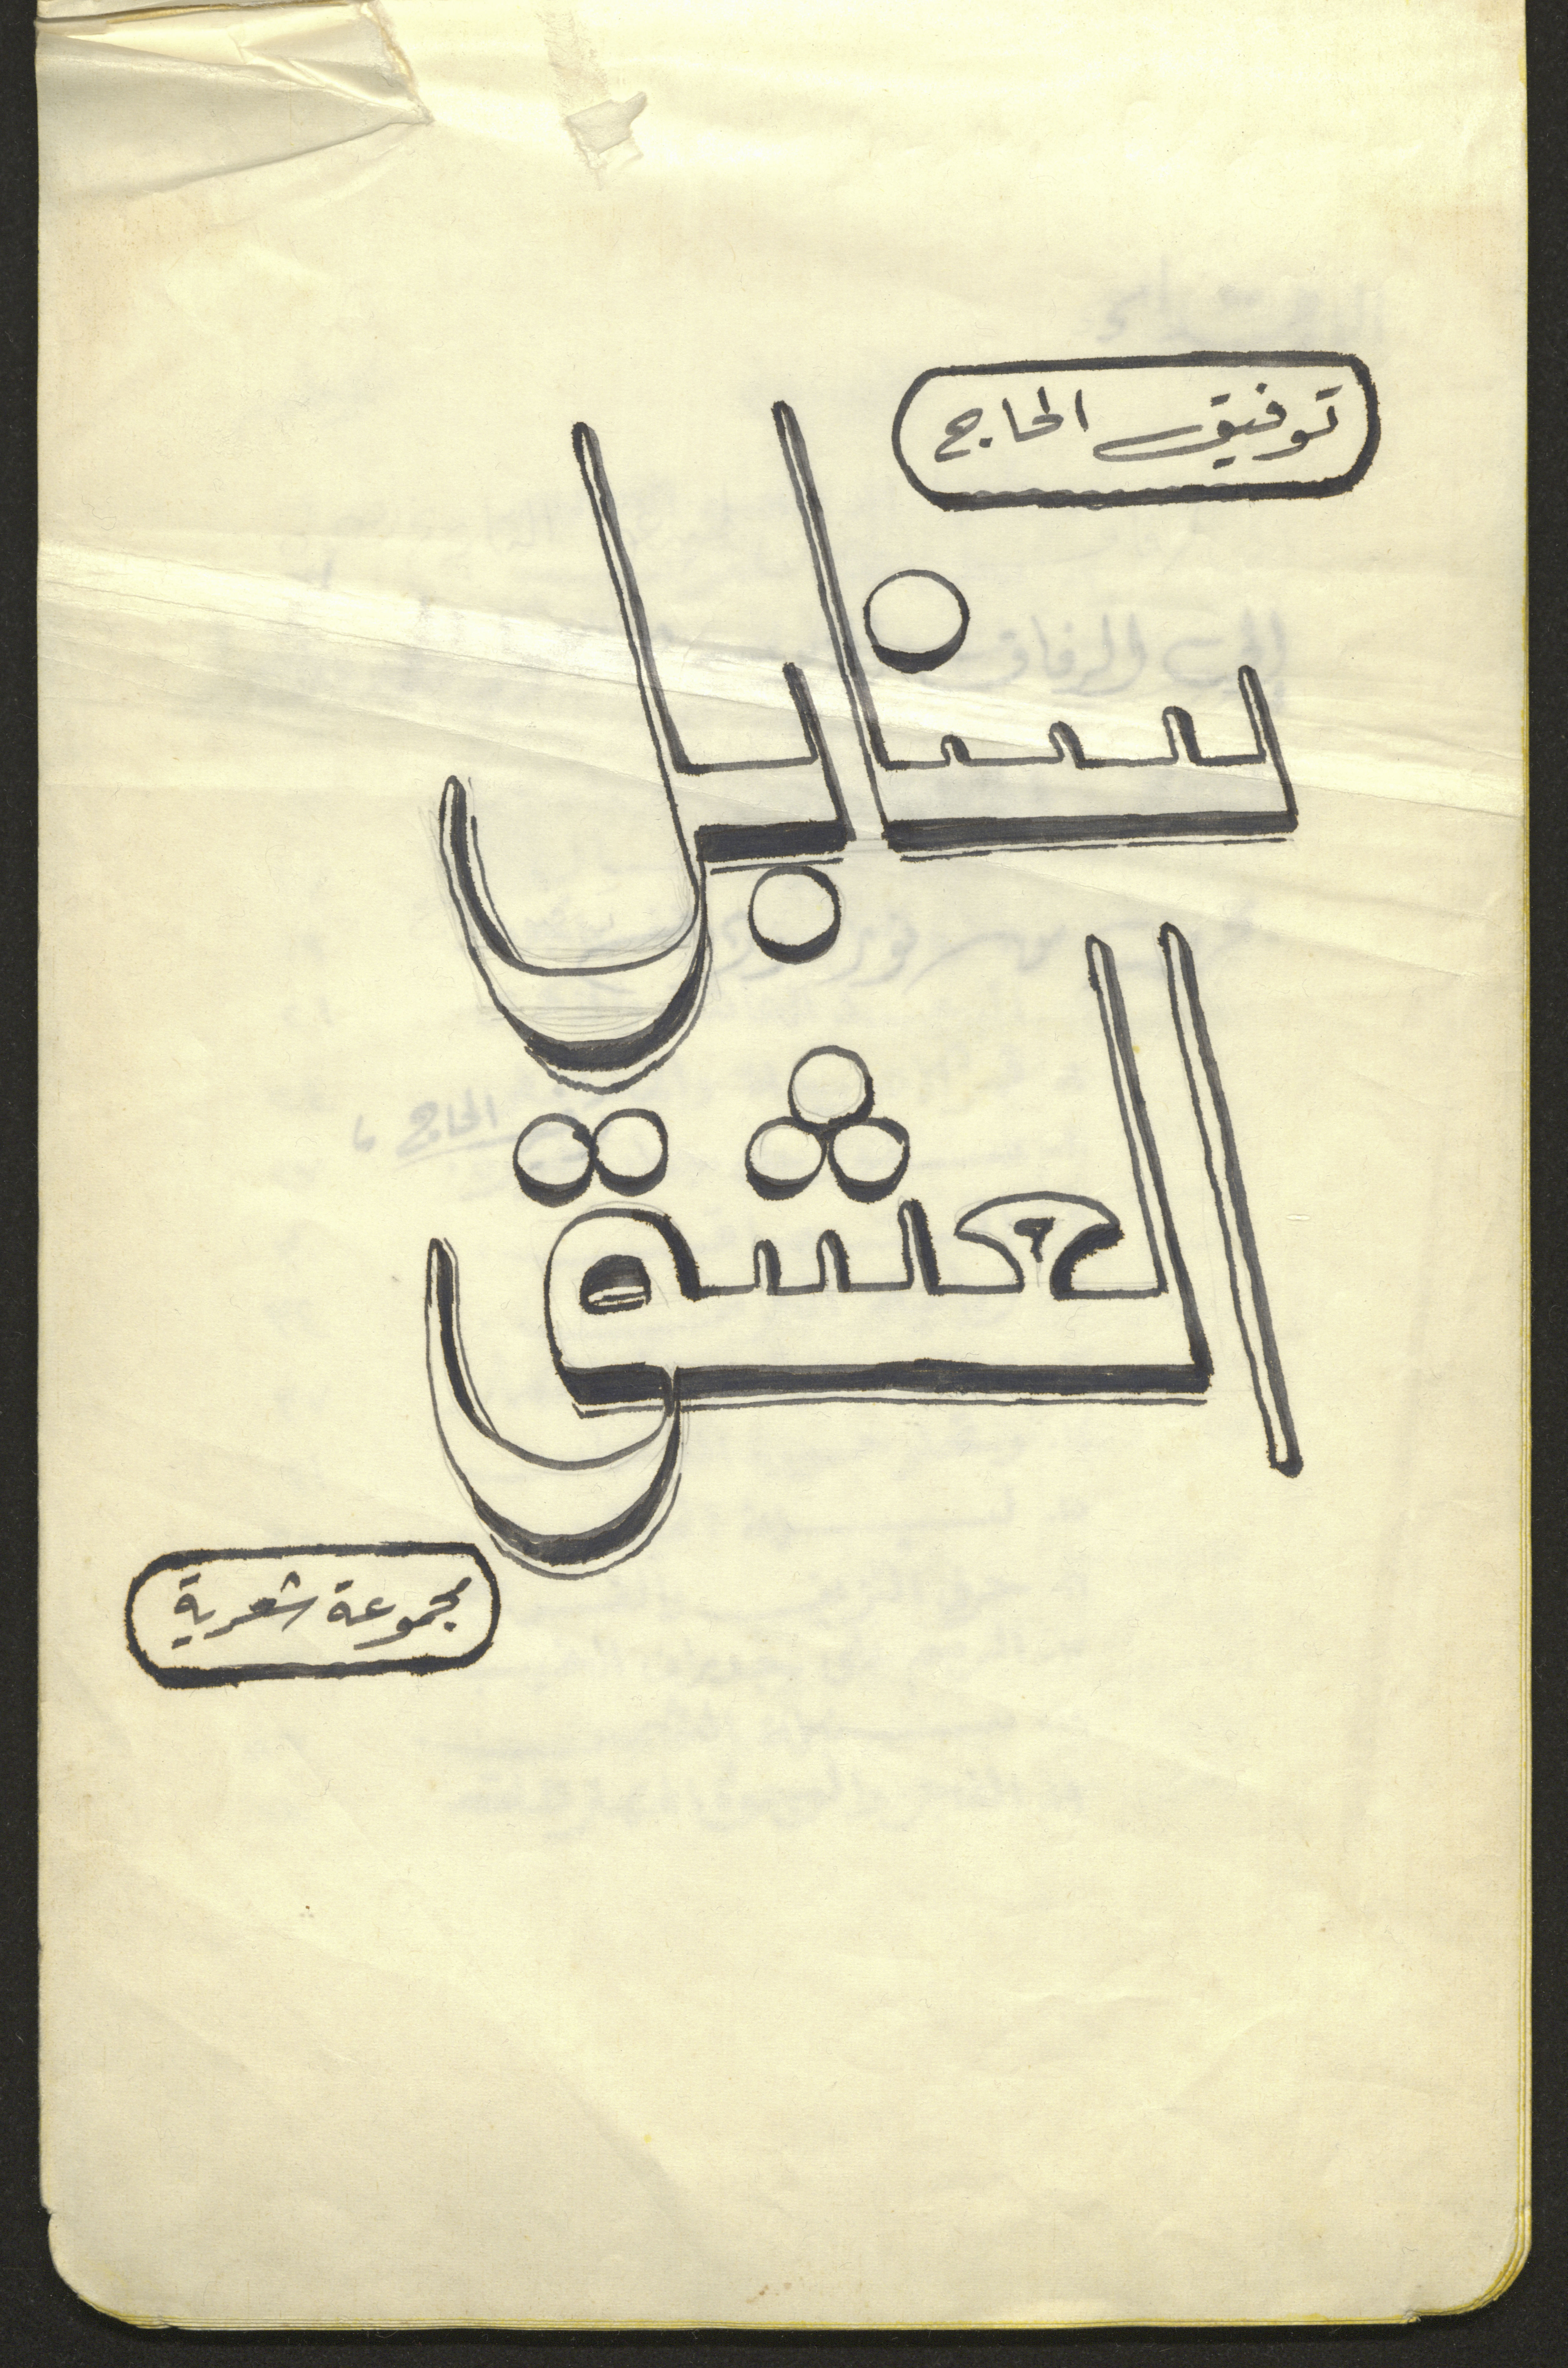 توفيق الحاج
سنابل
العشق
مجموعة شعرية